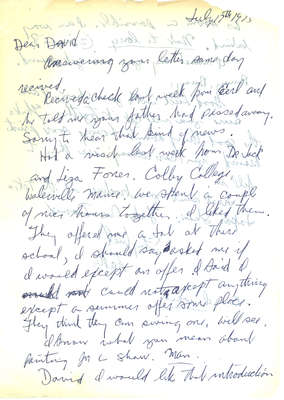 July 15th 19
Dear David
Answering your letter same day
recived.
Received check last week from Earl and
he told me your father had passed away.
Sorry to hear that kind of news.
Had a visit last week from
and Liza Fones. Colby College
Waterville Maine. We spent a couple
of nice hours together. I liked them.
They offered me a Job at there
school, I should say asked me if
I would except an offer. I said I
could not except anything
except a summer offer some place.
They think they can swing one, will see.
I know what you mean about
painting for a show. Man.
David I would like that introduction